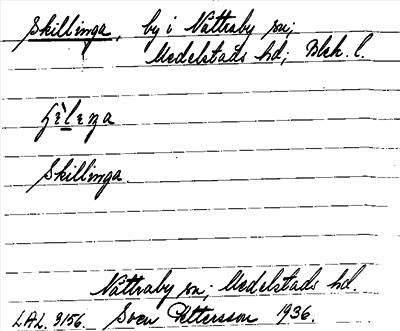 Skillinga, by i Nättraby sn;
Medelstads hd; Blek. l.
Skillinga
Nättraby sn; Medelstads hd.
L.A.L. 3156. Sven Pettersson 1936.